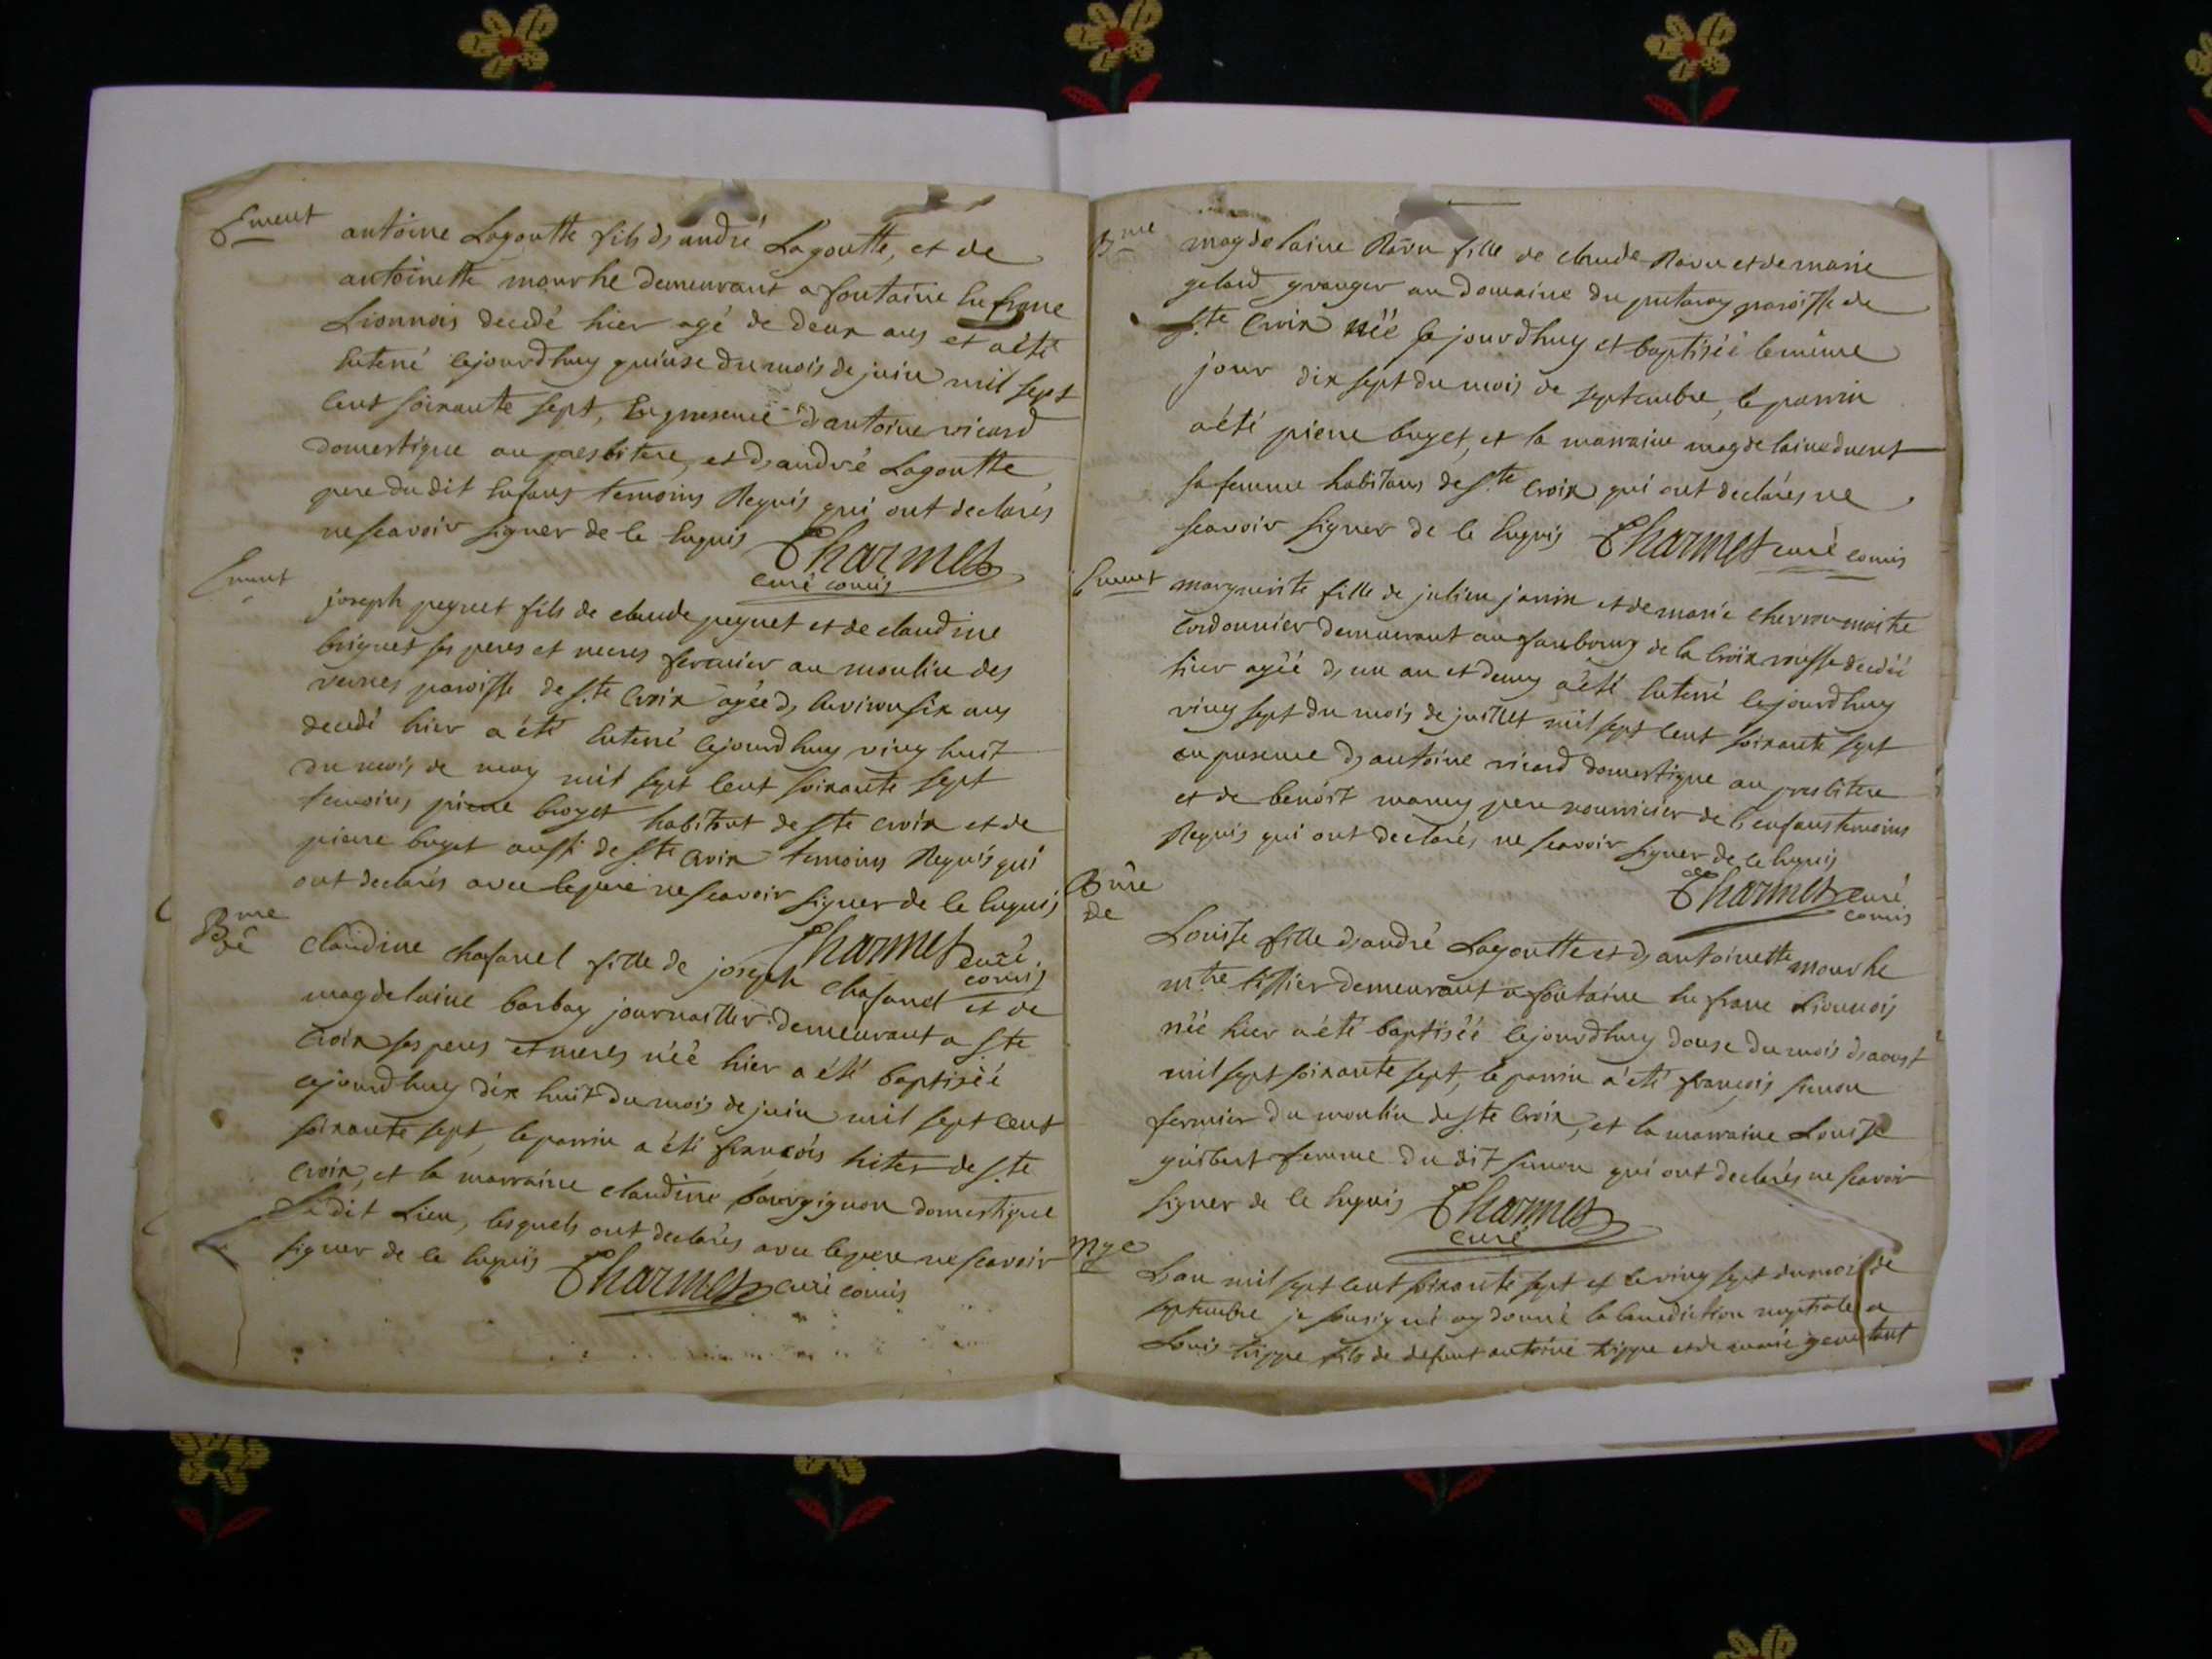 Ement
antoine Lagoutte fils d, andré Lagoutte, et de
antoinette mourhe demeurant a fontaine En franc
Lionnois decedé hier agé de deux ans et a été
Enterré cejourdhuy quinse du mois de juin mil sept
Cent soixante sept, En presence d, antoine ricard
domestique au presbitere, et d, andré Lagoutte
pere du dit Enfant temoins Requis qui ont declarés
ne scavoir signer de ce Enquis Charmes
curé comis
Ement
joseph peguet fils de claude peguet et de claudine
briguet ses peres et meres fermier au moulin des
vernes paroisse de Ste Croix agée d, Environ six ans
decedé hier a été Enterré cejourdhuy ving huit
du mois de may mil sept Cent soixante sept
temoins pierre broget habitant de Ste Croix et de
pierre buget aussi de Ste Croix temoins Requis qui
ont declarés avec le pere ne scavoir signer de ce Enquis
Charmes curé comis
Bme
de
Claudine chafanel fille de joseph chafanel et de
magdelaine barbay journaillier demeurant a Ste
Croix ses peres et meres néé hier a été baptiséé
cejourdhuy dix huit du mois de juin mil sept Cent
soixante sept, le parrin a été francois hiter de Ste
Croix, et la marraine claudine bourgignon domestique
Su dit Lieu, lesquels ont declarés avec le pere ne scavoir
signer de ce Enquis Charmes curé comis
Bme
magdelaine Ravu fille de claude Ravu et de marie
gelard granger au Domaine du putaray paroisse de
Ste Croix néé ce jourdhuy et baptiséé le même
jour dix sept du mois de septembre, le parrin
a été pierre buget, et la marraine magdelaine ducret
sa femme habitans de Ste Croix qui ont declarés ne
scavoir signer de ce Enquis Charmes curé comis
Ement
marguerite fille de julien janin et de marie chervon maitre
Cordonnier demeurant au faubourg de la Croix rousse decedéé
hier agéé d, un an et demy a été Enterré cejourdhuy
ving sept du mois de juillet mil sept Cent soixante sept
en presence d, antoine ricard domestique au presbitere
et de benoist marny pere nourricier de l, enfant temoins
Requis qui ont declarés, ne scavoir signer de ce Enquis
Charmes curé
comis
Bme
de
Louise fille d, andré Lagoutte et d, antoinette mourhe
mtre tissier demeurant a fontaine En franc Lionnois
néé hier a été baptiséé cejourdhuy douse du mois d, aoust
mil sept soixante sept, le parrin a été francois simon
fermier du moulin de Ste Croix, et la marraine Louise
guibert femme du dit simon qui ont declarés ne scavoir
signer de ce Enquis Charmes
curé
Mge
L, an mil sept cent soixante sept et le ving sept du mois de
septembre je sousigné ay donné la benediction nuptiale a
Louis trippe fils de defunt antoine trippe et de marie